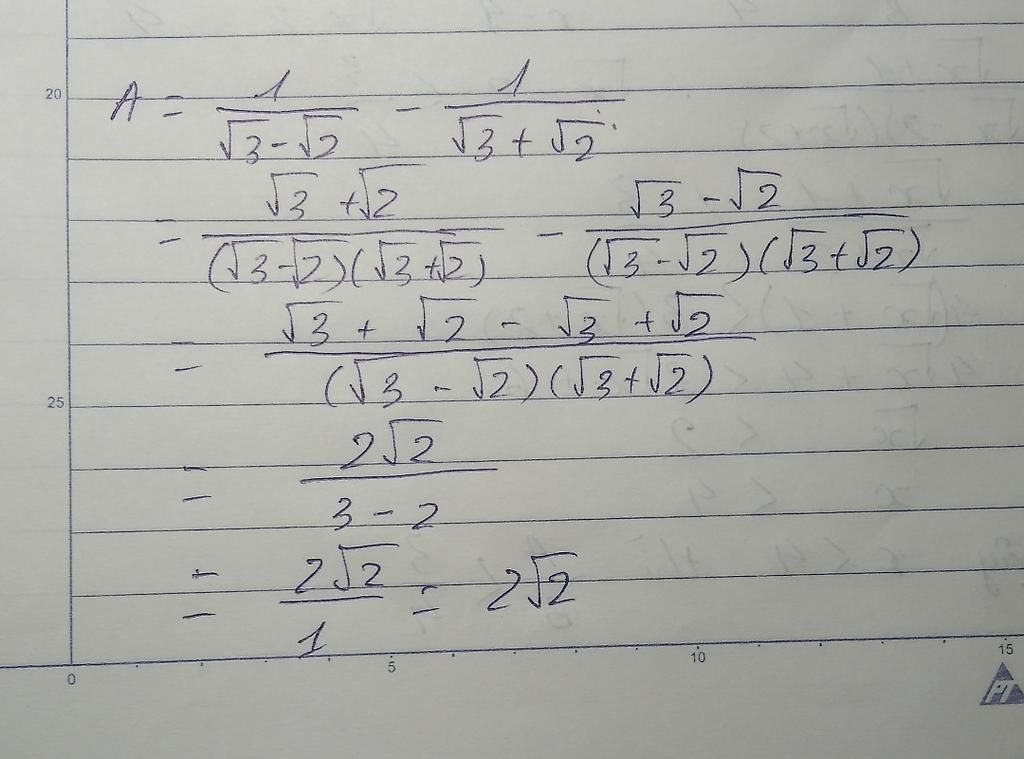 20
A = 1/(√3-√2) - 1/(√3+√2)
= (√3+√2)/((√3-√2)(√3+√2)) - (√3-√2)/((√3-√2)(√3+√2))
= (√3+√2-√3+√2)/((√3-√2)(√3+√2))
25
= 2√2/(3-2)
= 2√2/1 = 2√2
0 5 10 15
PT